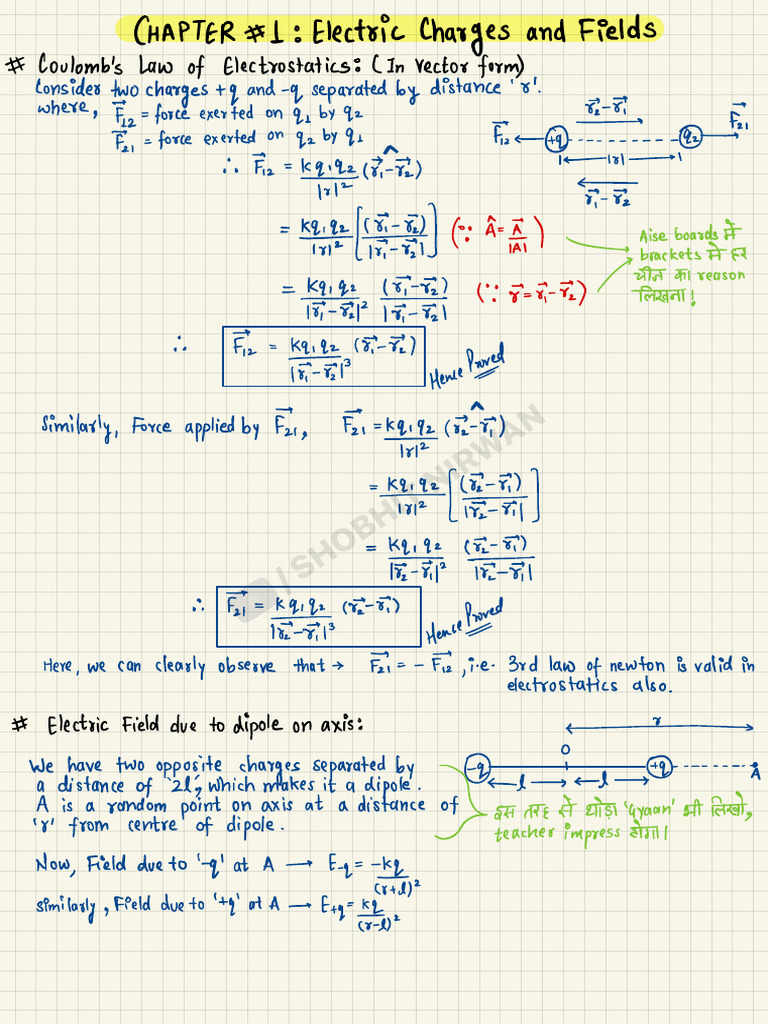 CHAPTER # 1 : Electric Charges and Fields
# Coulomb's Law of Electrostatics: (In vector form)
Consider two charges +q and -q separated by distance 'r'.
where, F⃗₁₂ = force exerted on q₁ by q₂
F⃗₂₁ = force exerted on q₂ by q₁
r⃗₂-r⃗₁
F⃗₁₂ +q q₂ F⃗₂₁
|r|
r⃗₁-r⃗₂
∴ F⃗₁₂ = kq₁q₂/|r|² (r⃗₁-r⃗₂)^
= kq₁q₂/|r|² [(r⃗₁-r⃗₂)/|r⃗₁-r⃗₂|] (∵ Â = A⃗/|A|)
= kq₁q₂/|r⃗₁-r⃗₂|² (r⃗₁-r⃗₂)/|r⃗₁-r⃗₂| (∵ r⃗ = r⃗₁-r⃗₂)
Aise boards में
brackets में हर
चीज का reason
लिखना!
∴ F⃗₁₂ = kq₁q₂/|r⃗₁-r⃗₂|³ (r⃗₁-r⃗₂)
Hence Proved
Similarly, Force applied by F⃗₂₁, F⃗₂₁ = kq₁q₂/|r|² (r⃗₂-r⃗₁)^
= kq₁q₂/|r|² [(r⃗₂-r⃗₁)/|r⃗₂-r⃗₁|]
= kq₁q₂/|r⃗₂-r⃗₁|² (r⃗₂-r⃗₁)/|r⃗₂-r⃗₁|
∴ F⃗₂₁ = kq₁q₂/|r⃗₂-r⃗₁|³ (r⃗₂-r⃗₁)
Hence Proved
/ SHOBHIT NIRWAN
Here, we can clearly observe that → F⃗₂₁ = - F⃗₁₂, i.e. 3rd law of newton is valid in
electrostatics also.
# Electric Field due to dipole on axis:
r
O
-q +q A
l l
We have two opposite charges separated by
a distance of '2l', which makes it a dipole.
A is a random point on axis at a distance of
'r' from centre of dipole.
इस तरह से थोड़ा 'Gyaan' भी लिखो,
teacher impress होगा।
Now, Field due to '-q' at A → E₋q = -kq/(r+l)²
similarly, Field due to '+q' at A → E₊q = kq/(r-l)²